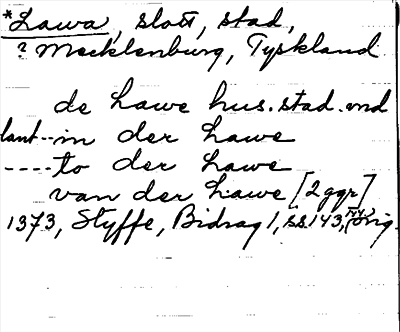 *Lawa, slott, stad,
? Mecklenburg, Tyskland
de Lawe hus. stad. vnd
lant--in der Lawe
----to der Lawe
van der Lawe [2 ggr]
1373, Styffe, Bidrag 1, ss 143, 144, orig.